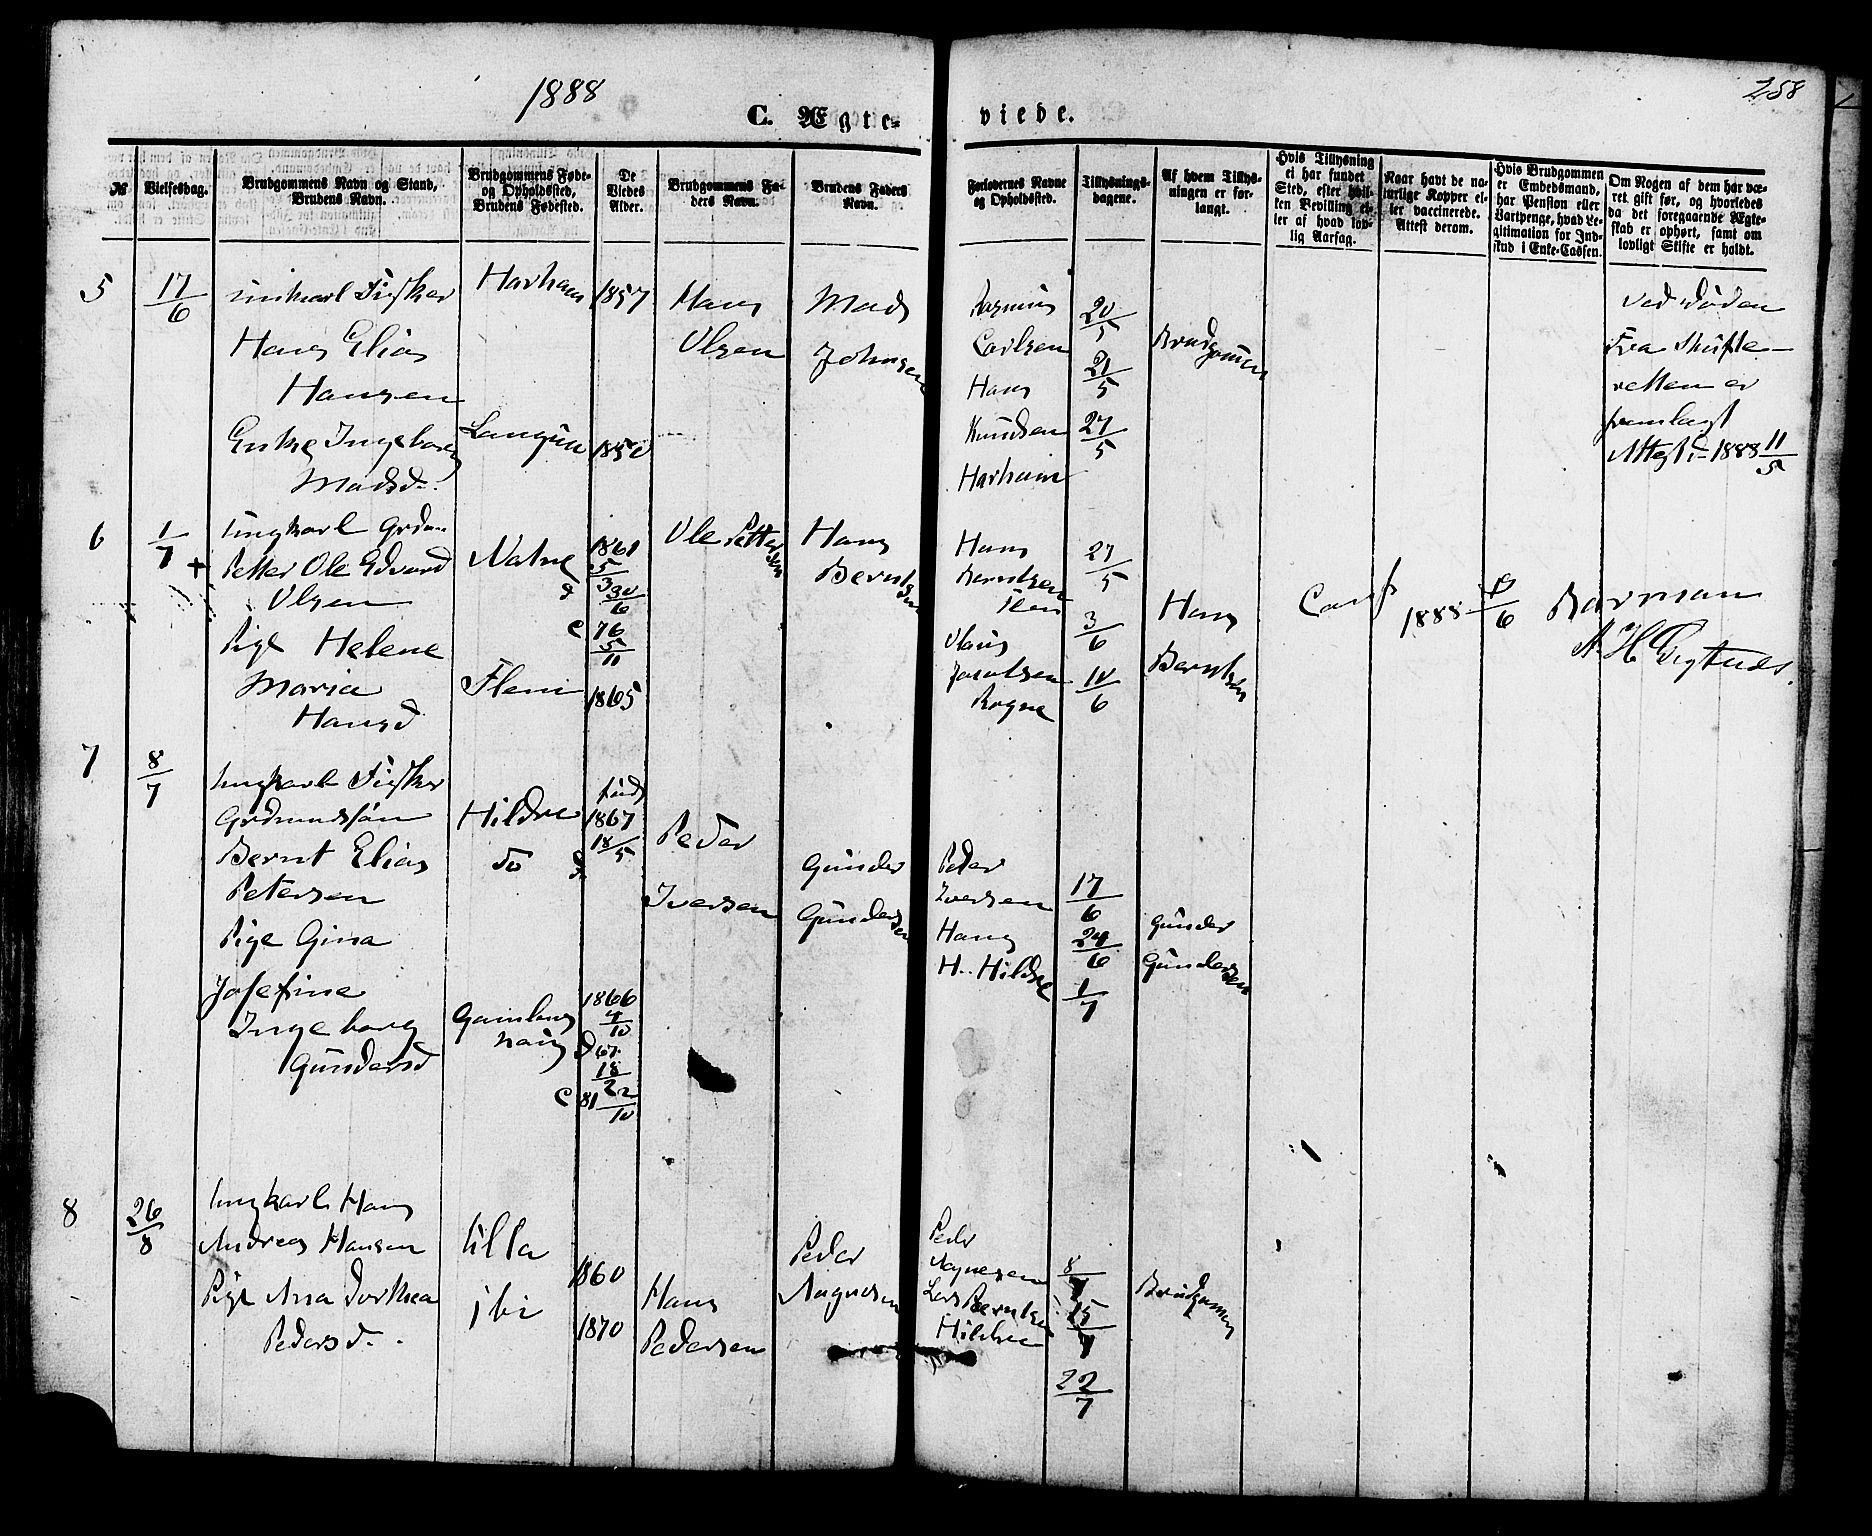 1888
258
C. Ægte-
viede.
№
Vielsesdag.
Brudgommens Navn og Stand,
Brudens Navn.
Brudgommens Føde-
og Opholdssted,
Brudens Fødested.
De
Viedes
Alder.
Brudgommens Fa-
ders Navn.
Brudens Faders
Navn.
Forlovernes Navne
og Opholdssted.
Tillysnings-
dagene.
Af hvem Tillys-
ningen er for-
langt.
Hvis Tillysning
ei har fundet
Sted, efter hvil-
ken Bevilling el-
ler af hvad lov-
lig Aarsag.
Naar havt de na-
turlige Kopper el-
ler vaccinerede.
Attest derom.
Hvis Brudgommen
er Embedsmand,
har Pension eller
Vartpenge, hvad Le-
gitimation for Ind-
skud i Enke-Cassen.
Om Nogen af dem har væ-
ret gift før, og hvorledes
da det foregaaende Ægte-
skab er ophørt, samt om
lovligt Skifte er holdt.
5
17/6
Ungkarl Fisker
Hans Elias
Hansen
Enke Ingeborg
Madsd.
Harham
1857
1850
Hans
Olsen
Mads
Johnsen
Rasmus
Carlsen
Hans
Knudsen
Harham
20/5
21/5
27/5
Brudgommen
ved Døden
Fra Skifte-
retten er
fremlagt
Attest d. 1888 11/5
6
1/7
Ungkarl Grdm.
Petter Ole Edvard
Olsen
Pige Helene
Maria
Hansd
Flem
1861
5/3
30/6
c 76
5/11
1865
Ole Pettersen
Hans
Berntsen
Hans
Berntsen
Flem
Jacobsen
Rogne
27/5
3/6
10/6
Hans
Berntsen
1888
7
8/7
Ungkarl Fisker
Grdmandssøn
Bernt Elias
Petersen
Pige Gina
Josefine
Ingeborg
Gundersd
Hildre
do
født
1867
18/5
1866
4/10
d 67
18/2
c 81 22/10
Peder
Iversen
Gunder
Gundersen
Peder
Iversen
Hans
H. Hildre
17/6
24/6
1/7
Gunder
Gundersen
8
26/8
Ungkarl Hans
Andreas Hansen
Pige Ana Dorthea
Pedersd.
Ulla
ibi
1860
1870
Hans
Pedersen
Peder
Peder
Lars Berntsen
8/7
15/7
22/7
Brudgommen